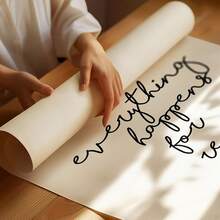 everything
happens
for